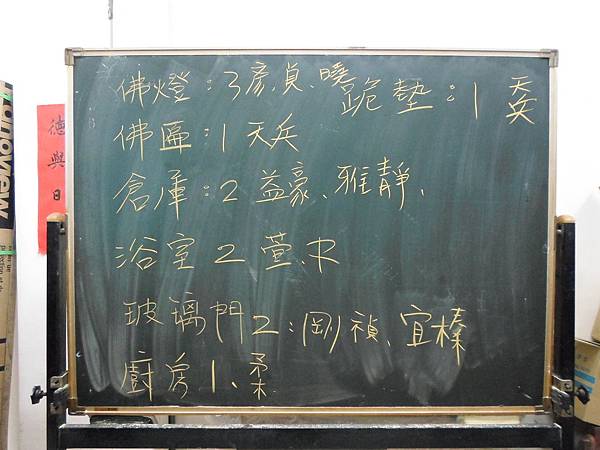 佛燈:3彥,貞,曉
跪墊:1 天兵
佛匾:1 天兵
倉庫:2 益豪、雅靜、
浴室 2 萱、
玻璃門2:剛禎、宜榛
廚房 1、柔
德與日